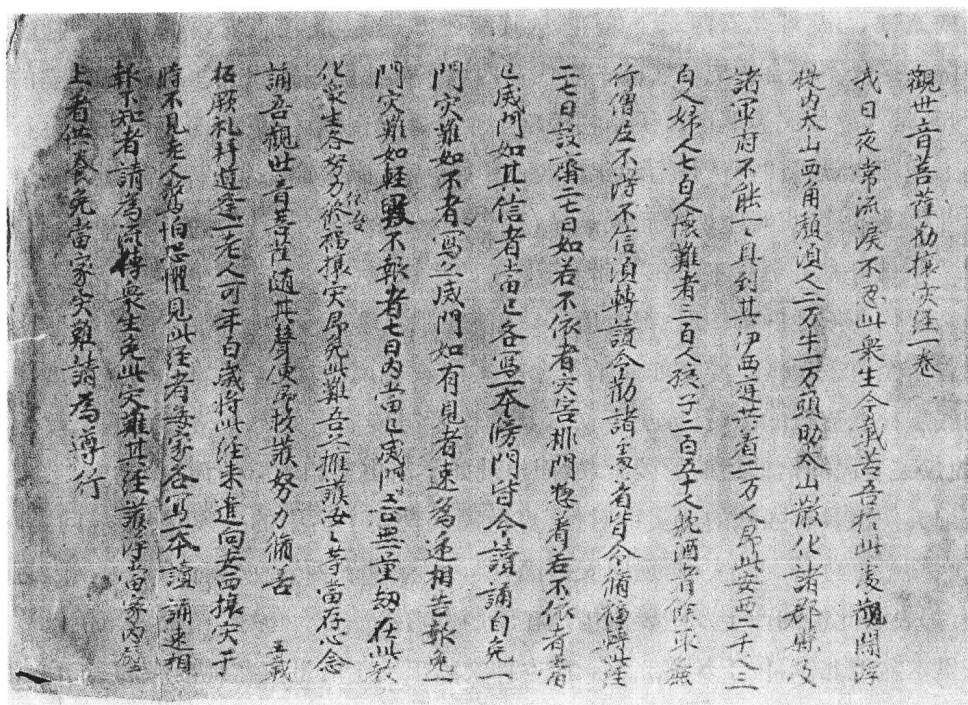 觀世音菩薩勸攘灾經一卷
我日夜常流淚不忍此衆生今載苦吾於此處觀閻浮
提内太山西角頹湏人二万牛一万頭助太山散化諸郡縣及
諸軍府不能一ゝ具到其伊西庭共着二万人即此安西二千人三
百人婦人七百人懷難者三百人孩子二百五十人躭酒者除取無
行僧尼不淨不信湏轉讀令勸諸衆皆令脩福轉此經
二七日設一齋二七日如若不依者灾害排門惣着若不依者當
已滅門如其信者當已各寫一本牓門皆令讀誦自免一
門灾難如不者寫亦滅門如有見者速為遞相告報免一
門灾難如輕毀不報者七日内當已滅門吾無量劫在此教
化衆生各努力脩福攘灾即免此難吾亦擁護汝ゝ等當存心念
誦吾觀世音菩薩随其聲便即救護努力脩善 五載
柘厥礼拜道逢一老人可年百歲將此經來進向安西攘灾于
時不見老人驚怕恐懼見此經者每家各寫一本讀誦速相
報不知者請為流傳衆生免此灾難其經護淨當家内
上者供養免當家灾難請為遵行